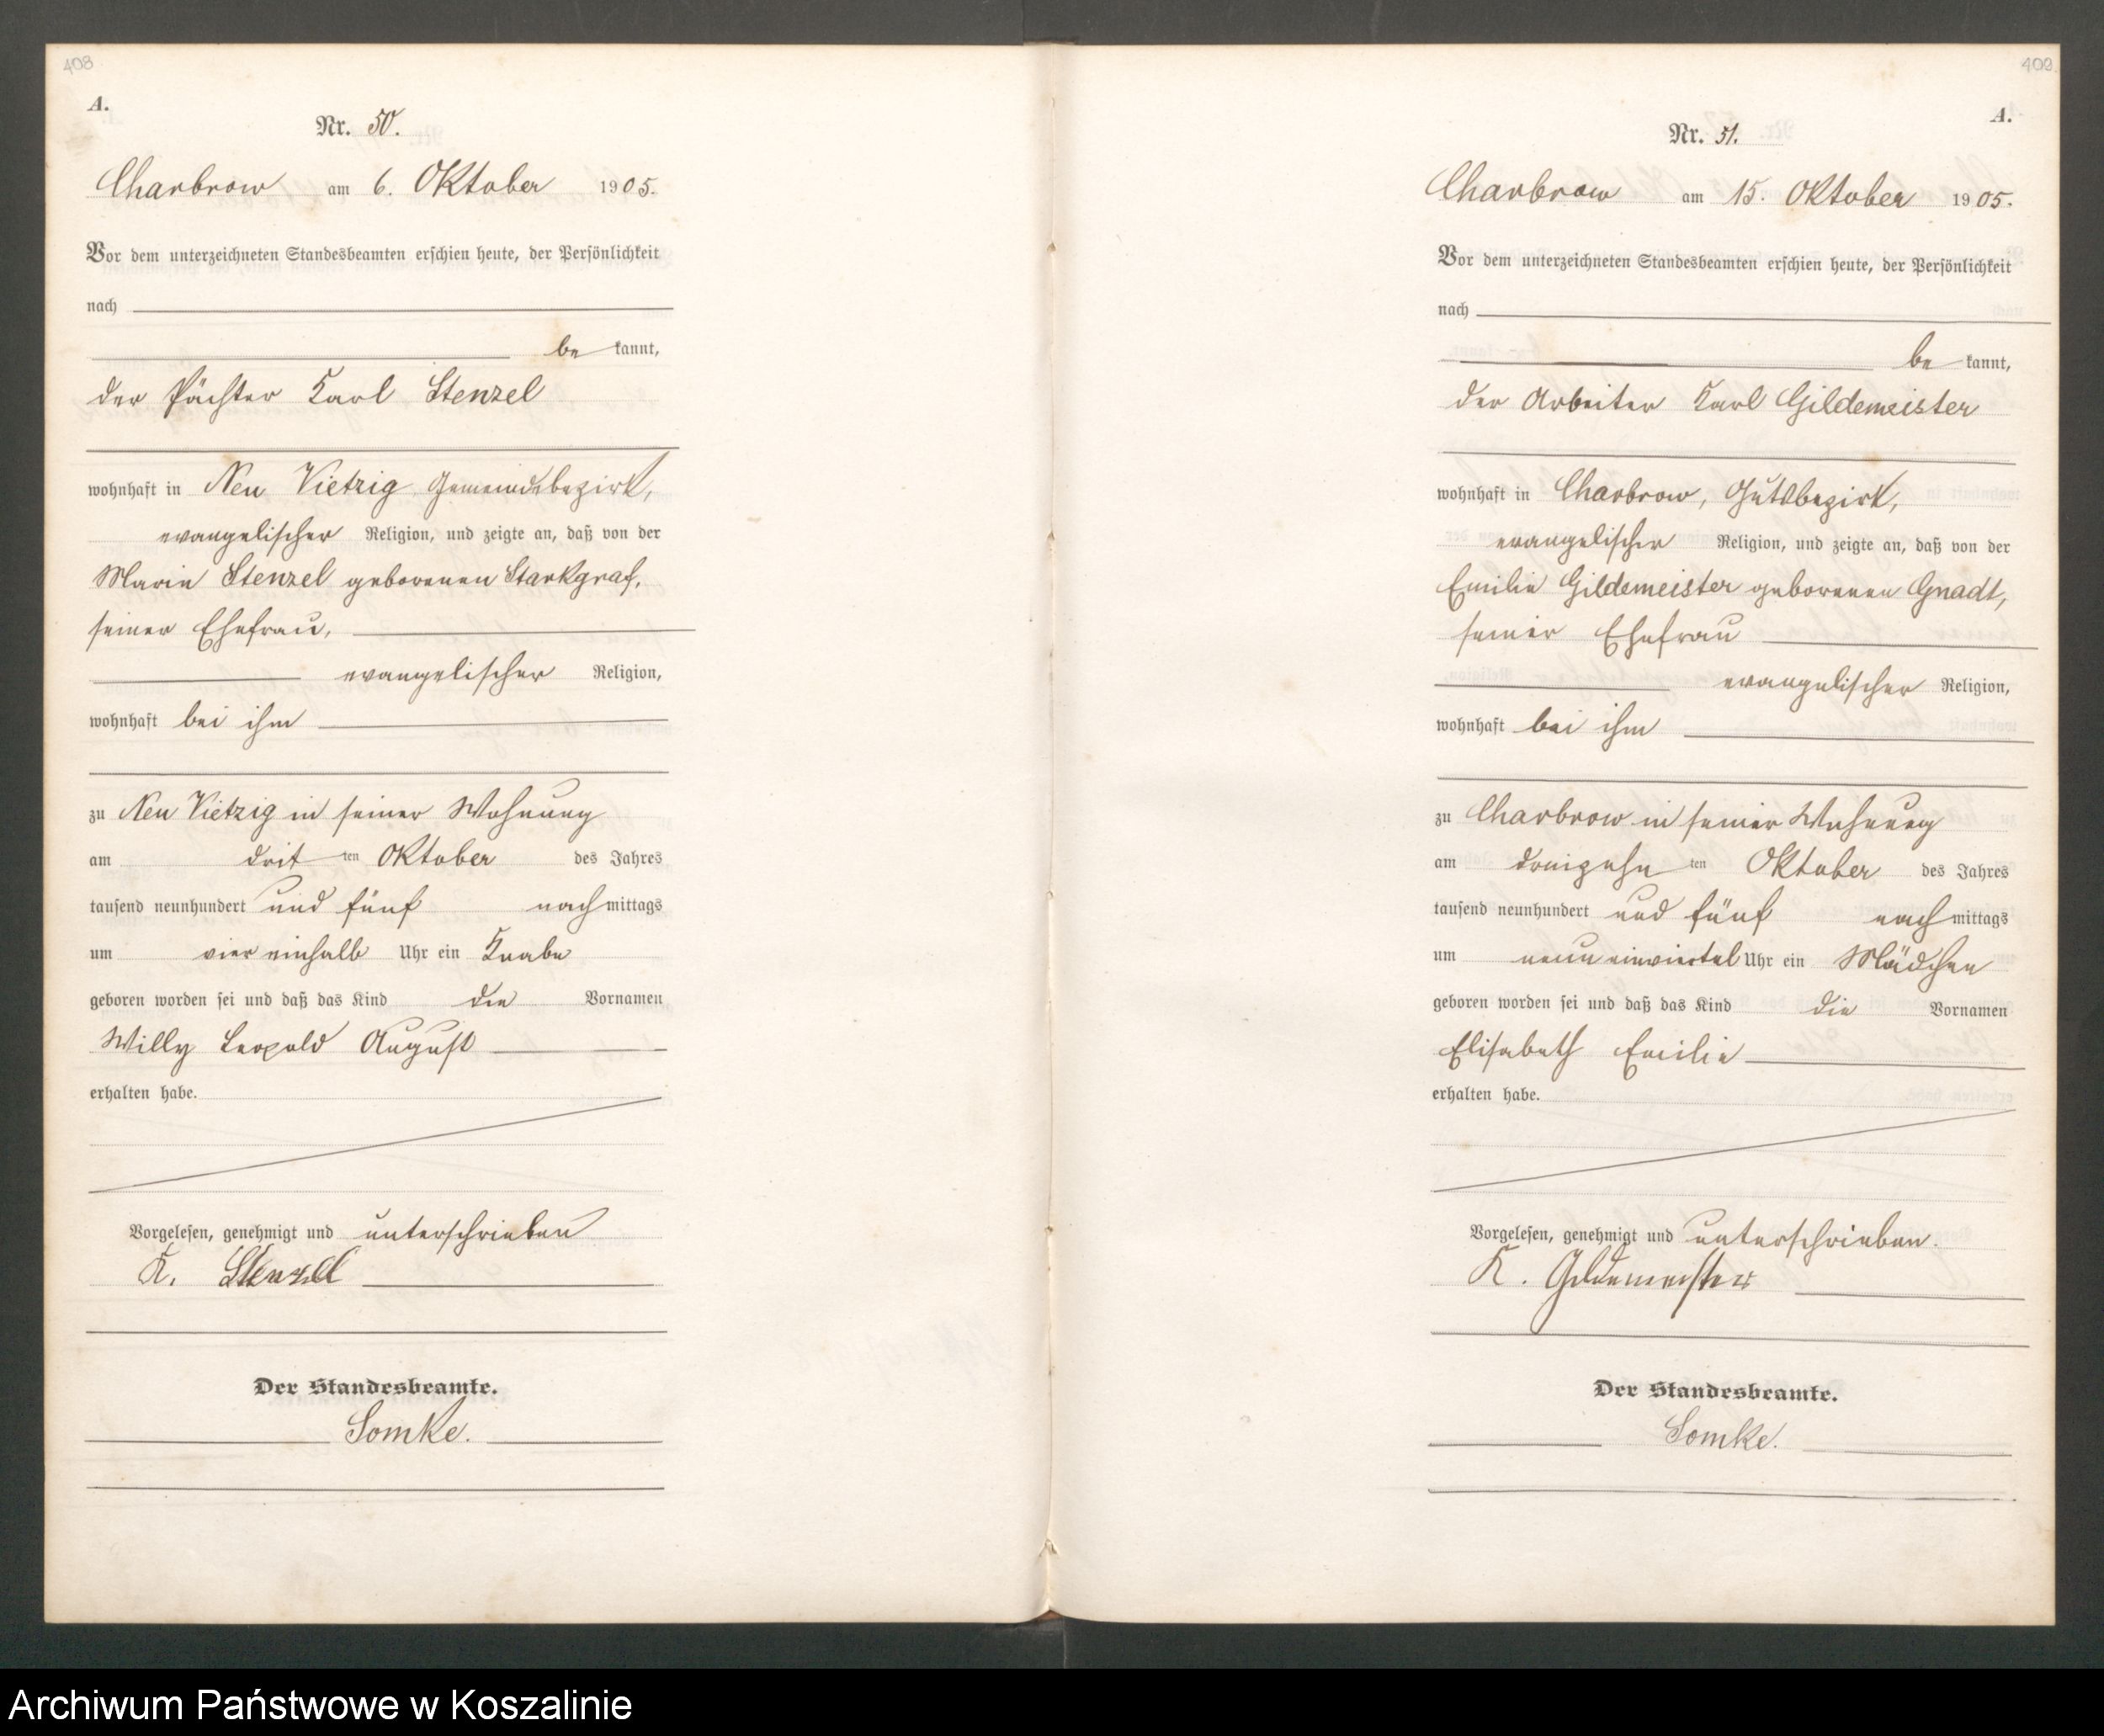 408
A.
Nr. 50.
Charbrow am 6. Oktober 1905.
Vor dem unterzeichneten Standesbeamten erschien heute, der Persönlichkeit
nach
be kannt,
der Pächter Karl Stenzel
wohnhaft in Neu Vietzig Gemeindebezirk,
evangelischer Religion, und zeigte an, daß von der
Marie Stenzel geborenen Starkgraf,
seiner Ehefrau,
evangelischer Religion,
wohnhaft bei ihm
zu Neu Vietzig in seiner Wohnung
am drit ten Oktober des Jahres
tausend neunhundert und fünf nach mittags
um vier einhalb Uhr ein Knabe
geboren worden sei und daß das Kind die Vornamen
Willy Leopold August
erhalten habe.
Vorgelesen, genehmigt und unterschrieben
K. Stenzel
Der Standesbeamte.
Somke.
409
A.
Nr. 51.
Charbrow am 15. Oktober 1905.
Vor dem unterzeichneten Standesbeamten erschien heute, der Persönlichkeit
nach
be kannt,
der Arbeiter Karl Gildemeister
wohnhaft in Charbrow, Gutsbezirk,
evangelischer Religion, und zeigte an, daß von der
Emilie Gildemeister geborenen Gnadt,
seiner Ehefrau
evangelischer Religion,
wohnhaft bei ihm
zu Charbrow in seiner Wohnung
am dreizehn ten Oktober des Jahres
tausend neunhundert und fünf nach mittags
um neun einviertel Uhr ein Mädchen
geboren worden sei und daß das Kind die Vornamen
Elisabeth Emilie
erhalten habe.
Vorgelesen, genehmigt und unterschrieben.
K. Gildemeister
Der Standesbeamte.
Somke.
Archiwum Państwowe w Koszalinie